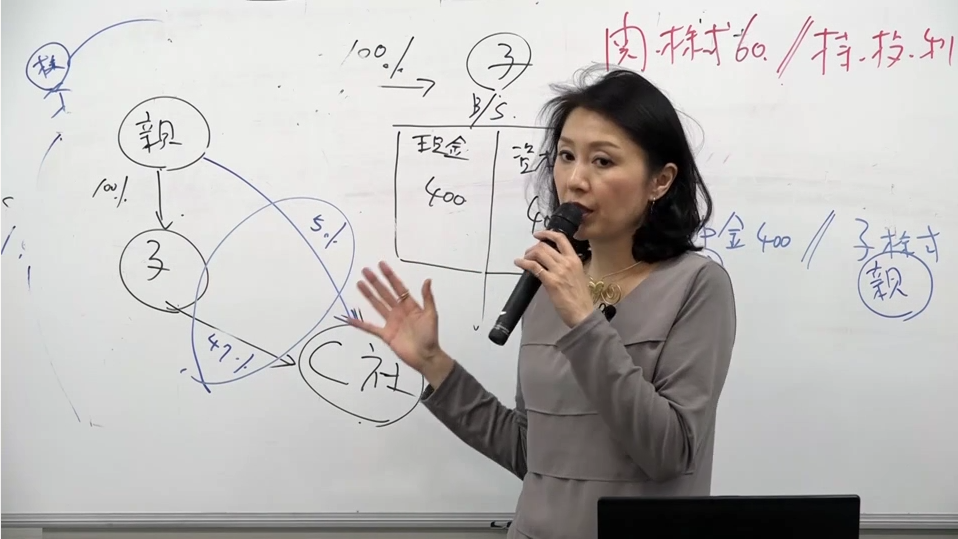 関.株式60 // 持.投.利
100%
子
B/S.
株
現金
400
親
100%
5%
金400 // 子株式
親
子
47%
C社